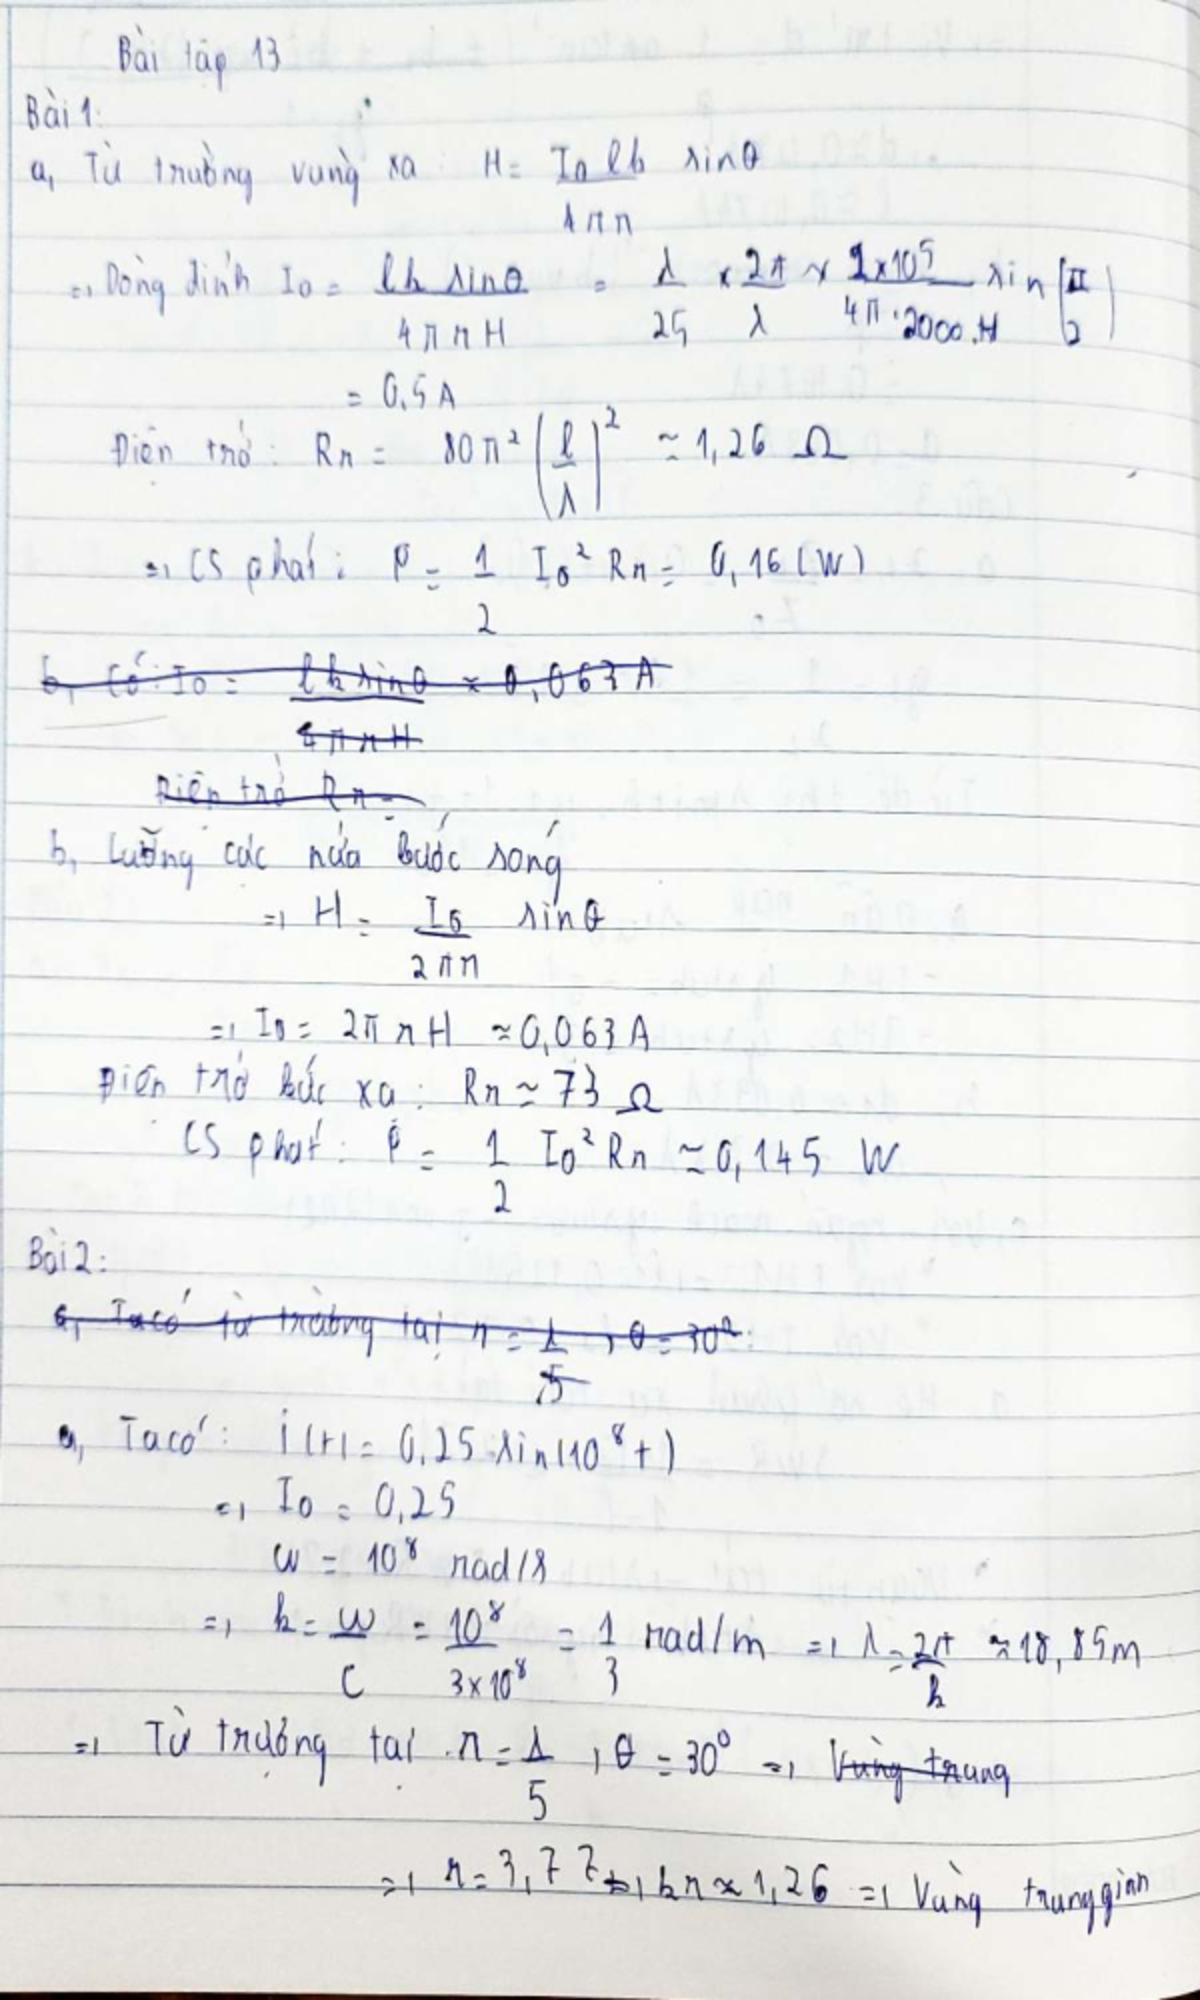 Bài tập 13
Bài 1:
a, Từ trường vùng xa: H = I₀lk/4πr sinθ
=> Dòng đỉnh I₀ = lk sinθ/4πrH = λ/25 × 2π/λ × 1×10⁵/4π.2000.H sin(π/2)
= 0,5A
Điện trở: Rr = 80π² (l/λ)² ≈ 1,26 Ω
=> CS phát: P = 1/2 I₀² Rr = 0,16 (W)
b, Có: I₀ = lk sinθ/4πrH ≈ 0,063A
Điện trở Rr =
b, Lưỡng cực nửa bước sóng
=> H = I₀/2πr sinθ
=> I₀ = 2πrH ≈ 0,063A
Điện trở bức xạ: Rr ≈ 73 Ω
CS phát: P = 1/2 I₀² Rr ≈ 0,145 W
Bài 2:
a, Ta có từ trường tại r = λ/5, θ = 30⁰:
a, Ta có: i(t) = 0,25.sin(10⁸t)
=> I₀ = 0,25
ω = 10⁸ rad/s
=> k = ω/C = 10⁸/3×10⁸ = 1/3 rad/m => λ = 2π/k ≈ 18,85m
=> Từ trường tại r = λ/5, θ = 30⁰ => Vùng trung
=> r = 3,77 => kr ≈ 1,26 => Vùng trung gian